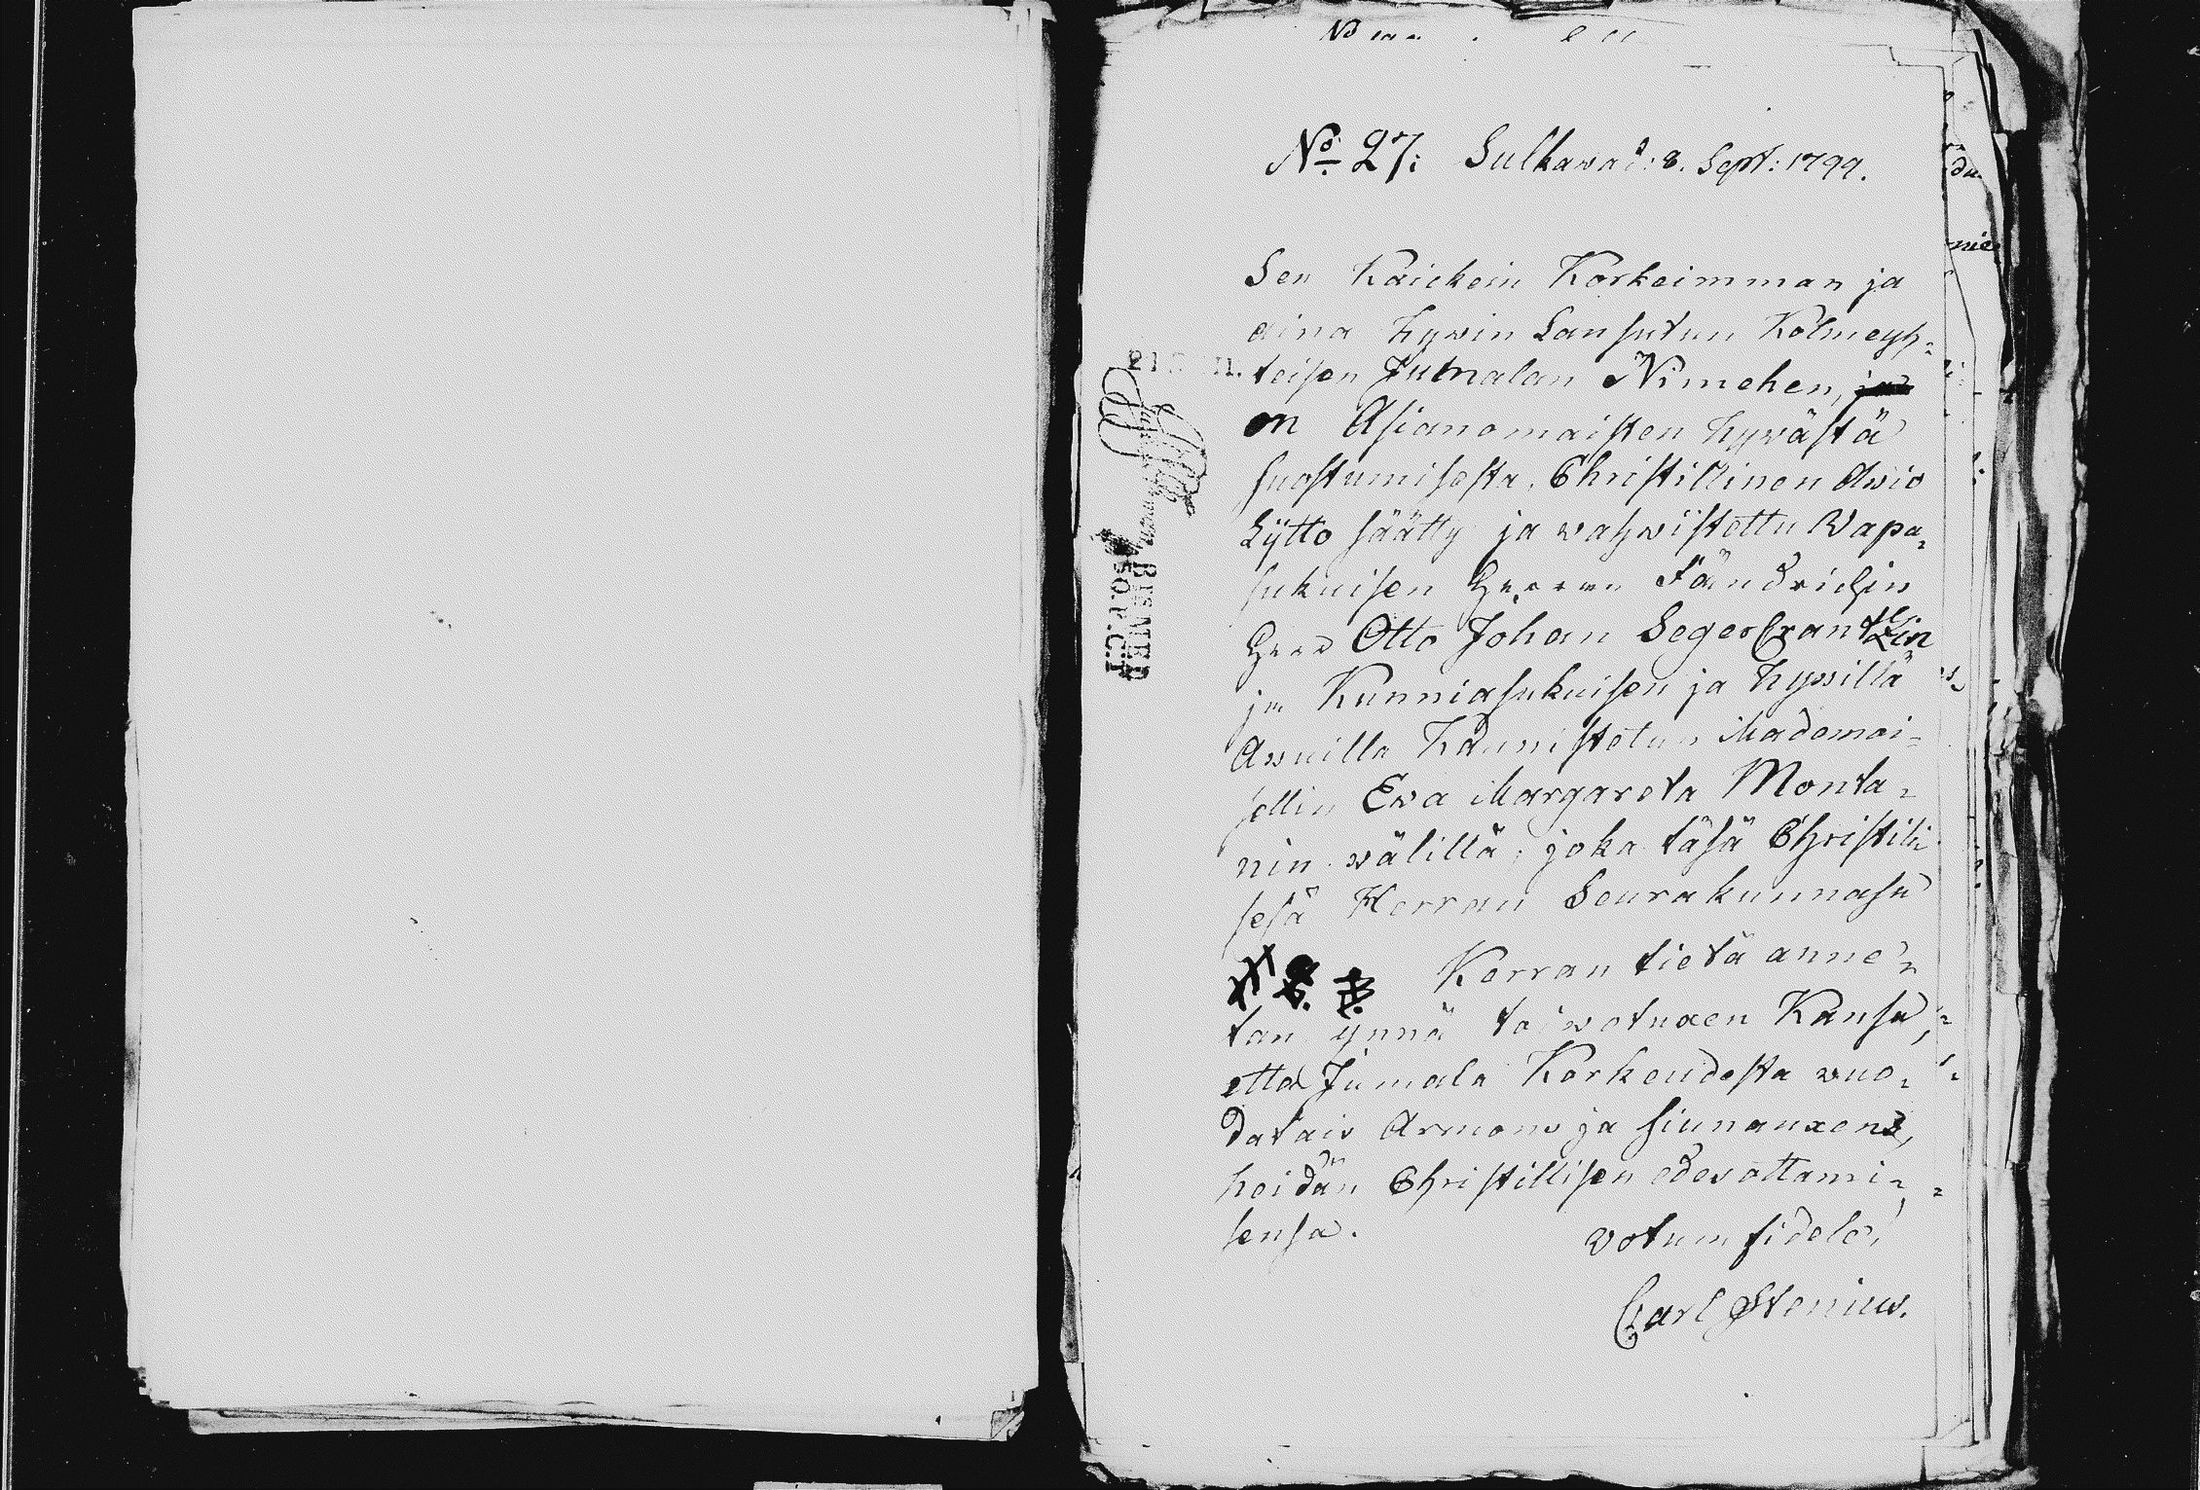 No 27: Sulkawa d: 8. Sept: 1799.
Sen Kaickein Korkeimman ja
aina hywin Lausutun Kolmeyh-
teisen Jumalan Nimehen,
on Asianomaisten hywästä
suostumisesta, Christillinen Awio
Lijtto säätty ja wahwistettu Wapa-
sukuisen Herran Fändrichin
Herr Otto Johan Segercrantzin
ja Kunniasukuisen ja hywillä
Awuilla Kaunistetun Mademoi-
sellin Ewa Margareta Monta-
nin wälillä; joka täsä Christili
sesä Herran Seurakunnasa
Kerran tietä anne-
tan ynnä toiwotuxen Kansa,
että Jumala Korkeudesta wuo-
datais Armons ja siunauxens,
heidän Christillisen edesottami-
sensa.
Votum fidele,
Carl Stenius.